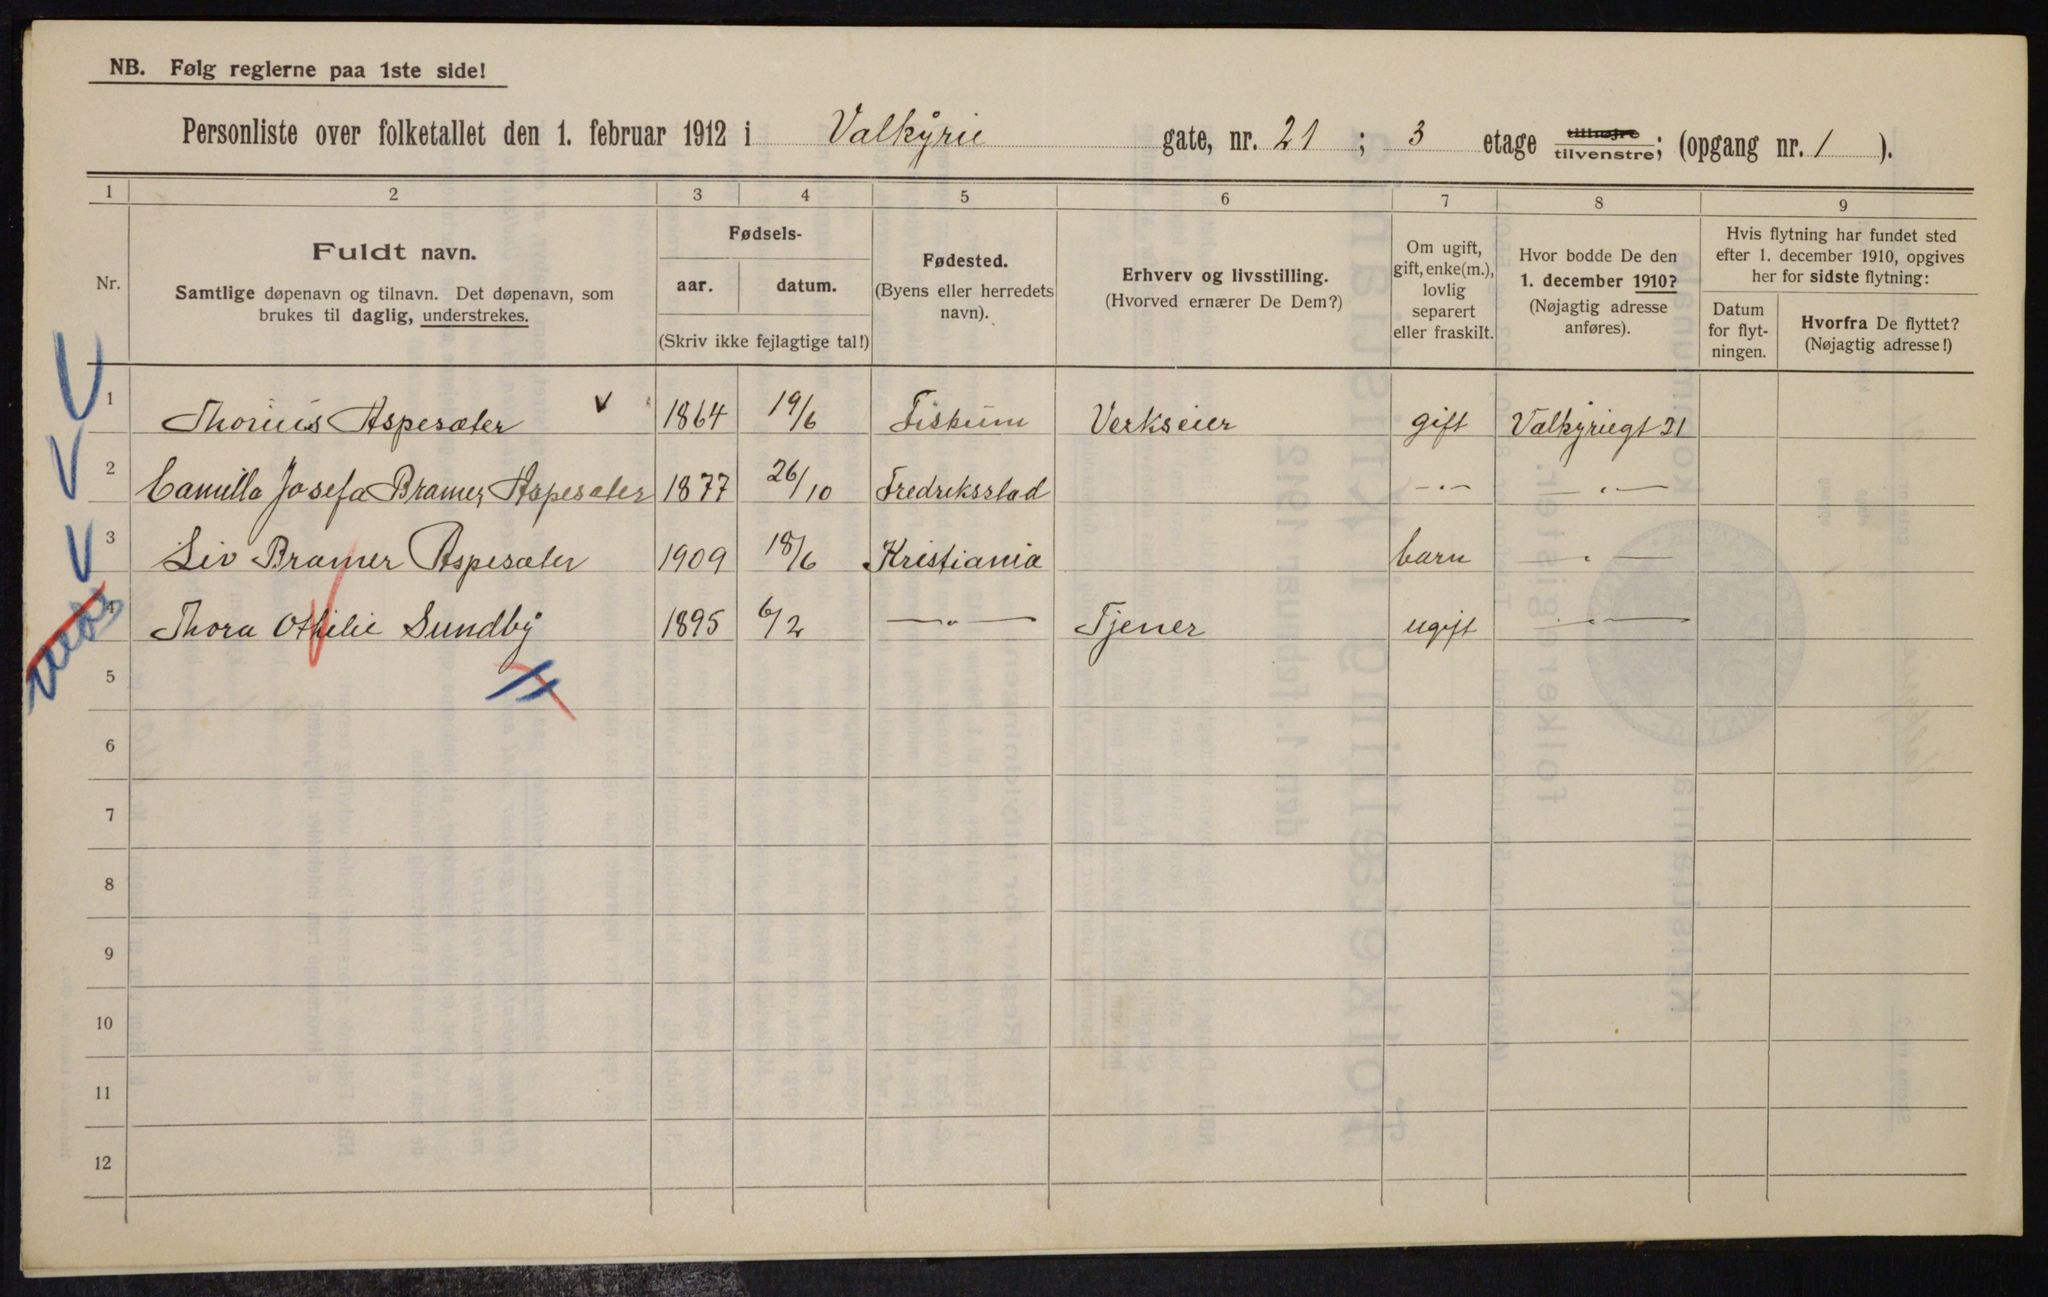 NB. Følg reglerne paa 1ste side!
Personliste over folketallet den 1. februar 1912 i Valkyrie gate, nr. 21 ; 3 etage tilhøjre tilvenstre; (opgang nr. 1 ).
1 2 3 4 5 6 7 8 9
Nr.
Fuldt navn.
Samtlige døpenavn og tilnavn. Det døpenavn, som
brukes til daglig, understrekes.
Fødsels-
aar. datum.
(Skriv ikke fejlagtige tal!)
Fødested.
(Byens eller herredets
navn).
Erhverv og livsstilling.
(Hvorved ernærer De Dem?)
Om ugift,
gift, enke(m.),
lovlig
separert
eller fraskilt.
Hvor bodde De den
1. december 1910?
(Nøjagtig adresse
anføres).
Hvis flytning har fundet sted
efter 1. december 1910, opgives
her for sidste flytning:
Datum
for flyt-
ningen.
Hvorfra De flyttet?
(Nøjagtig adresse!)
1 Thorius Aspesæter 1864 19/6 Fiskum Verkseier gift Valkyriegt 21
2 Camilla Josefa Bramer Aspesæter 1877 26/10 Fredriksstad -"- -"-
3 Liv Bramer Aspesæter 1909 18/6 Kristiania barn -"-
4 Thora Othilie Sundby 1895 6/2 -"- Tjener ugift -"-
5
6
7
8
9
10
11
12